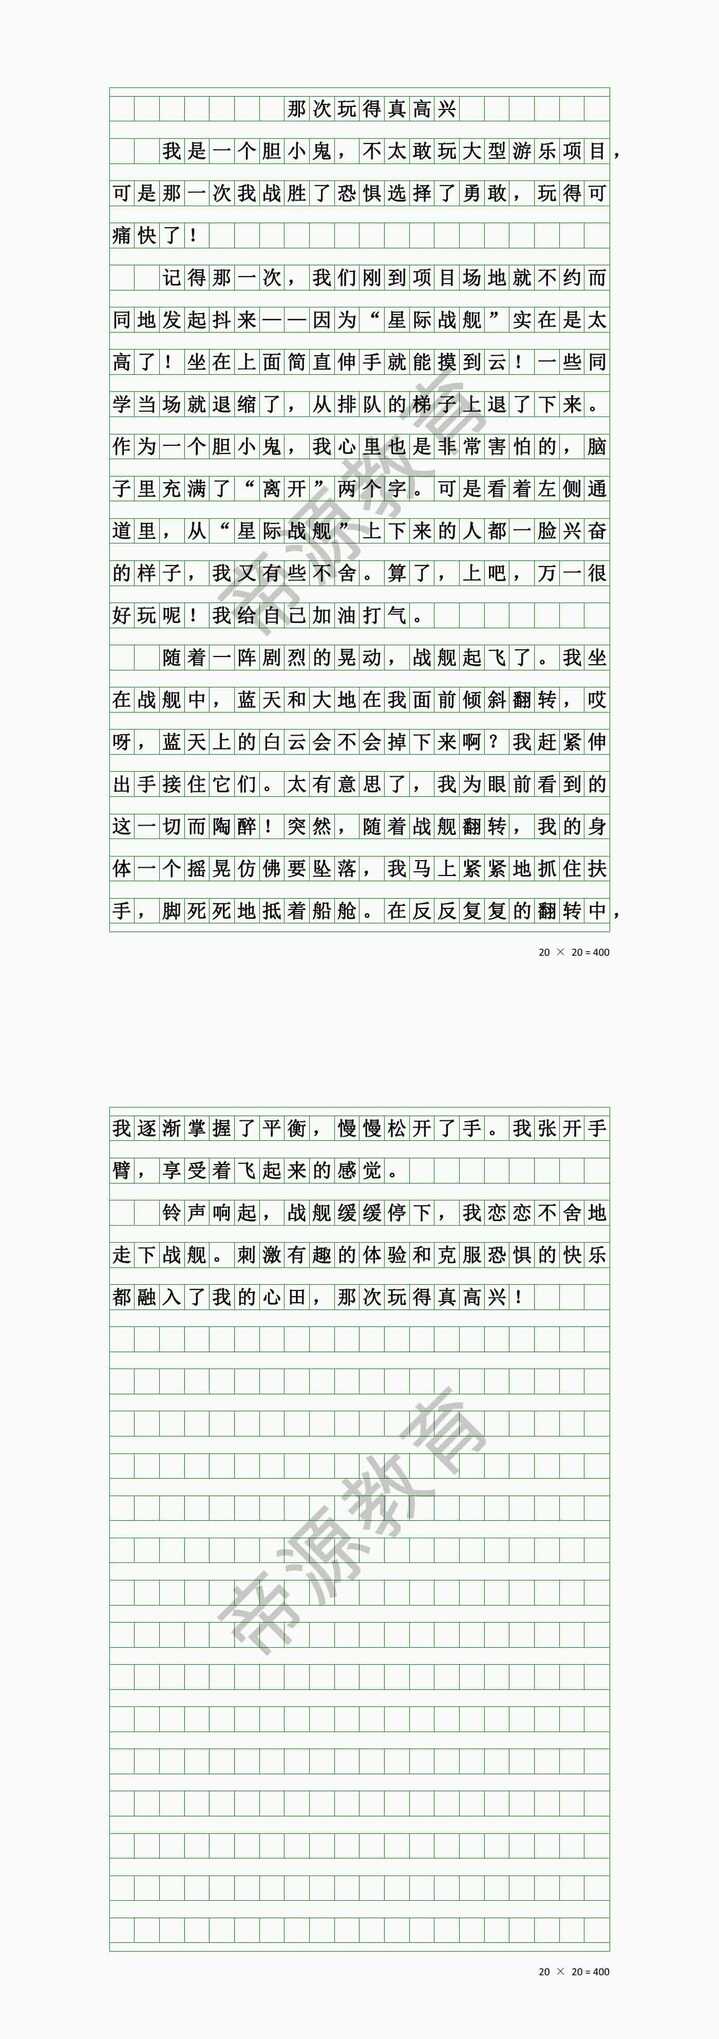 那次玩得真高兴
我是一个胆小鬼，不太敢玩大型游乐项目，
可是那一次我战胜了恐惧选择了勇敢，玩得可
痛快了！
记得那一次，我们刚到项目场地就不约而
同地发起抖来——因为“星际战舰”实在是太
高了！坐在上面简直伸手就能摸到云！一些同
学当场就退缩了，从排队的梯子上退了下来。
作为一个胆小鬼，我心里也是非常害怕的，脑
子里充满了“离开”两个字。可是看着左侧通
道里，从“星际战舰”上下来的人都一脸兴奋
的样子，我又有些不舍。算了，上吧，万一很
好玩呢！我给自己加油打气。
随着一阵剧烈的晃动，战舰起飞了。我坐
在战舰中，蓝天和大地在我面前倾斜翻转，哎
呀，蓝天上的白云会不会掉下来啊？我赶紧伸
出手接住它们。太有意思了，我为眼前看到的
这一切而陶醉！突然，随着战舰翻转，我的身
体一个摇晃仿佛要坠落，我马上紧紧地抓住扶
手，脚死死地抵着船舱。在反反复复的翻转中，
20 × 20 = 400
我逐渐掌握了平衡，慢慢松开了手。我张开手
臂，享受着飞起来的感觉。
铃声响起，战舰缓缓停下，我恋恋不舍地
走下战舰。刺激有趣的体验和克服恐惧的快乐
都融入了我的心田，那次玩得真高兴！
20 × 20 = 400
帝源教育
帝源教育